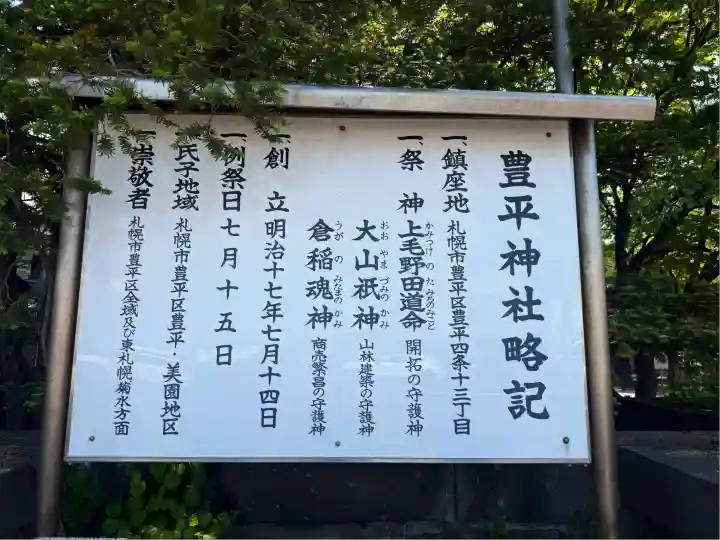 豊平神社略記
一、鎮座地 札幌市豊平区豊平四条十三丁目
一、祭神 上毛野田道命 開拓の守護神
かみつけ の た みちのみこと
大山祇神 山林建築の守護神
おお やま づみの かみ
倉稲魂神 商売繁昌の守護神
うが の みたまの かみ
一、創立 明治十七年七月十四日
一、例祭日 七月十五日
一、氏子地域 札幌市豊平区豊平・美園地区
一、崇敬者 札幌市豊平区全域及び東札幌菊水方面